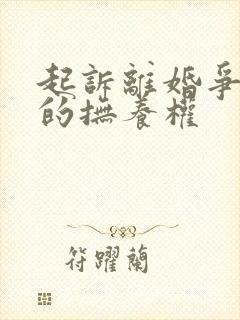 起訴離婚爭
的撫養權
符躍蘭